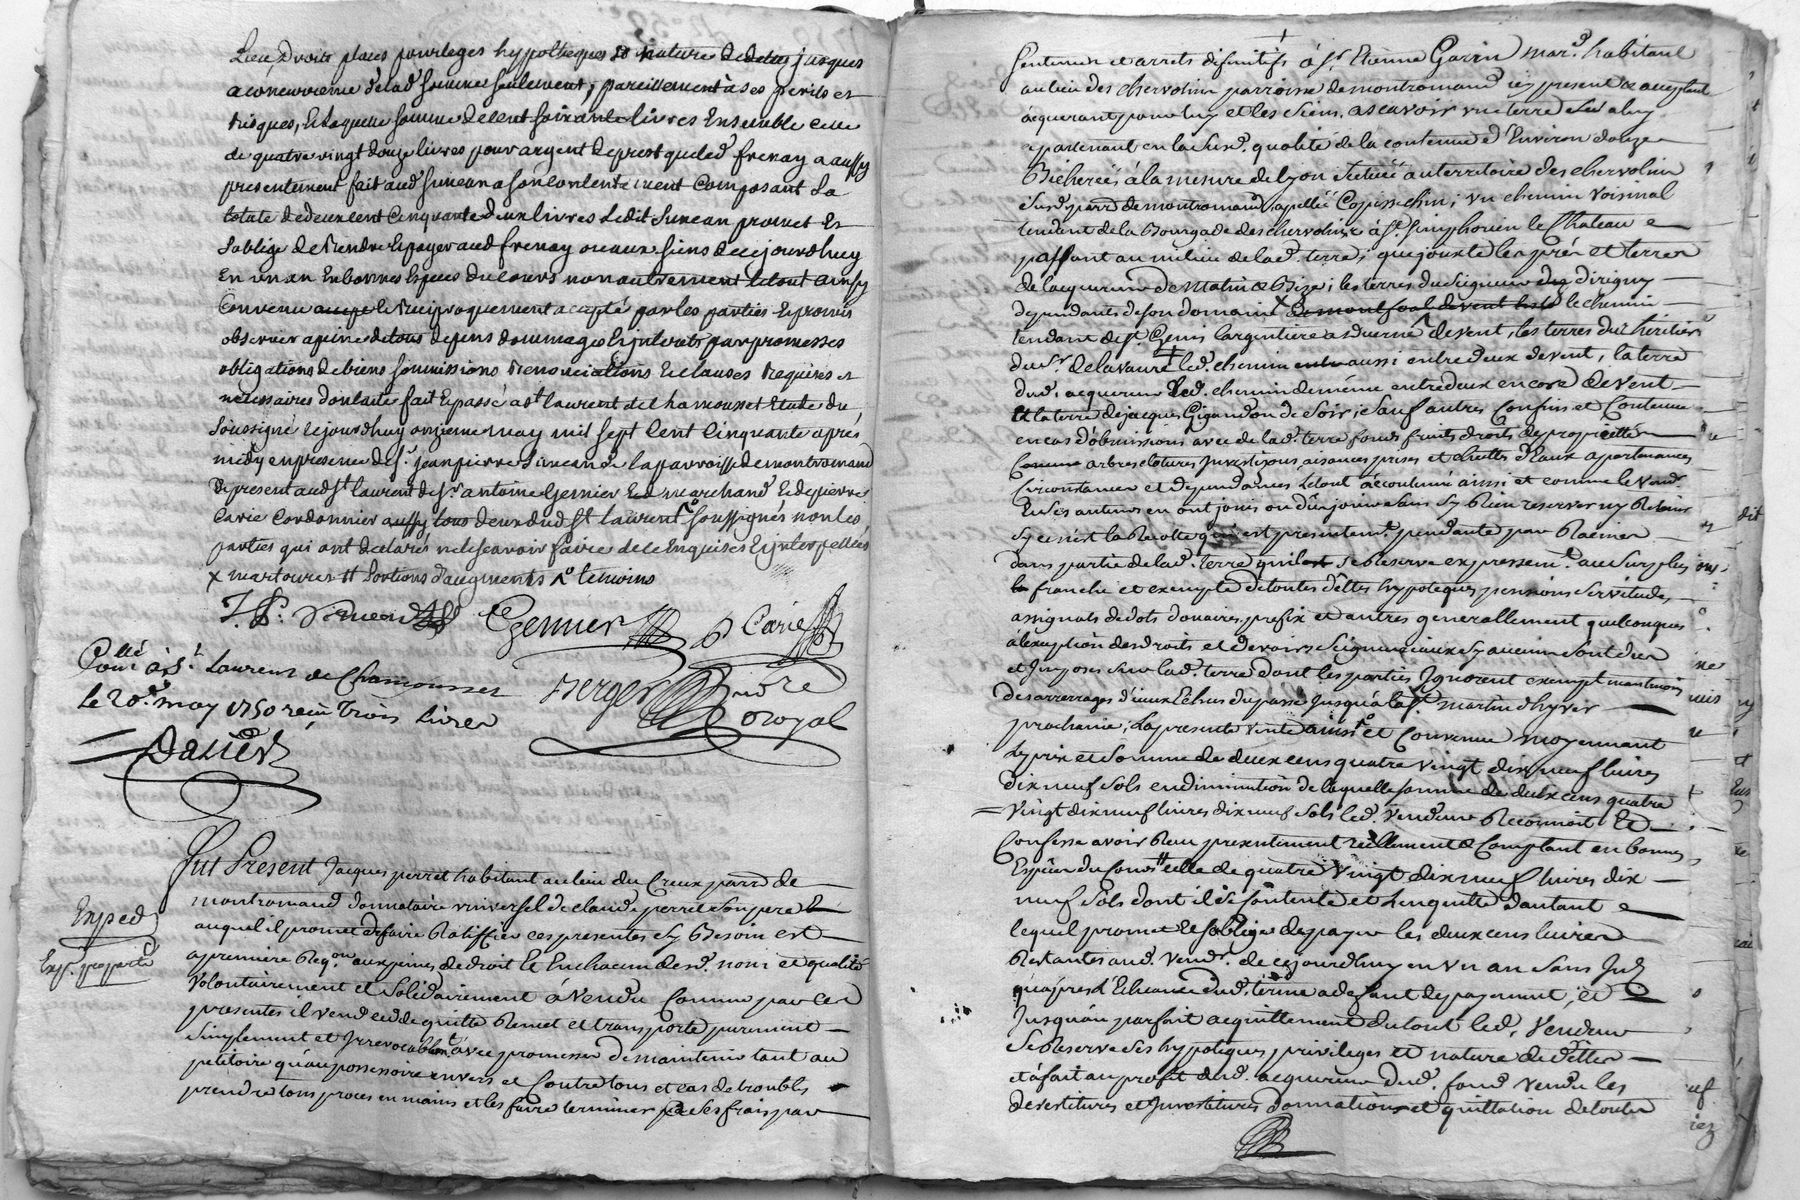 Lieu, Droits places privileges hypotheques et nature de dettes jusques
a concurrence de lad somme seulement, pareillement à ses perils et
risques, Et laquelle somme de cent soixante livres Ensemble celle
de quatre vingt douze livres pour argent de prest que led frenay a aussy
presentement fait aud simean a son contentement Composant La
totale de deux cent Cinquante deux livres Ledit Simean promet Et
soblige de Rendre Et payer aud frenay ou aux siens de ce jourdhuy
En un an En bonnes Especes du cours non autrement Le tout ainsy
Convenu Reciproquement accepté par les parties Et promis
observer a peine de tous depens dommages Et interets par promesses
obligations de biens soumissions Renonciations Et clauses Requises et
necessaires dont acte fait Et passé a st Laurent de Chamousset Etude du
soussigné Ce jourdhuy onzieme may mil sept Cent Cinquante après
midy en presence de sr. jean pierre simean de la parroisse de montromand
De present aud st Laurent de sr antoine Gernier Et marchand Et de pierre
Carie Cordonnier aussy tous deux dud st Laurent soussignés non les
parties qui ont declarés ne le scavoir faire de ce Enquises Et interpellées
temoins
Gernier
P Carie
Berger
Controllé à St. Laurent de Chamousset
le 20e. may 1750 reçu trois livres
Fut Present Jacques perret habitant au lieu du Creux parr.e de
montromand donnataire universel de claude perret son pere
auquel il promet de faire Ratiffier ces presentes sy Besoin est
a premiere Req.on aux peines de droit Et En chacun desd. noms et qualité
Exped
Volontairement et solidairement à Vendu Comme par ces
presentes il vend cede quitte Remet et transporte purement
simplement et Irrevocablem.t avec promesse de maintenir tant au
petitoire qu'au possessoire envers et Contre tous et cas de troubles
prendre tous proces en mains et les faire terminer a ses frais par
sentences et arrets definitifs à sr. Etienne Garin mar.d habitant
au lieu des chervolin parroisse de montromand icy present et acceptant
acquerant pour luy et les siens, ascavoir une terre a luy
apartenant en la susd. qualité de la contenue d'Environ douze
Bicherées à la mesure de Lyon situee au territoire des chervolin
susd. parr.e de montromand, un chemin Voisinal
tendant de la Bourgade des chervolin à st. simphorien le Chateau
passant au milieu de lad. terre; que jouxte les prés et terres
de lacquereur de matin et Bize; les terres du seigneur dirigny
dependantes de son domaine le chemin
tendant de st. Genis Largentiere de vent, les terres des heritiers
du sr. de lavaure led. chemin aussi entre deux de vent; la terre
dud. acquereur led. chemin de même entre deux encore de vent
Et la terre de jacques Gigandon de soir; sauf autres Confins et Contenue
en cas d'obmissions avec de lad. terre fonds fruits droits de proprietté
Comme arbres clotures aisances prises et chuttes d'Eaux apartenances
Circonstances et dependances Le tout accoutumé ainsi et comme le Vend.r
Et ses auteurs en ont jouis ou dû jouir sans sy Rien reserver ny Retenir
sy ce n'est la Recolte qui est presentem.t pendante par Racines
dans partie de lad. terre quil se Reserve expressem.t au surplus
franche et exempte de toutes dettes hypoteques pensions servitudes
assignats de dots douaires prefix et autres generallement quelconques
à l'exeption des droits et devoirs seigneuriaux sy aucuns sont dus
et Imposes sur lad. terre dont les parties Ignorent exempt neantmoins
des arrerages d'iceux Echus du passé jusqu'à la st. martin dhyver
prochaine; La presente vente ainsi et Convenue moyennant
le prix et somme de deux cens quatre vingt dix neuf livres
dix neuf sols en diminution de laquelle somme de deux cens quatre
Vingt dix neuf livres dix neuf sols led. Vendeur Reconnoit Et
Confesse avoir Reçu presentement réellement et Comptant en bonnes
Especes du Cours celle de quatre Vingt dix neuf livres dix
neuf sols dont il se contente et L'en quitte dautant
lequel promet Et soblige de payer les deux cens livres
Restantes aud. Vend.r de ce jourdhuy en un an sans
qu'après L'Echeance dud. terme a defaut de payement; et
Jusqu'au parfait acquittement du tout led. Vendeur
se Reserve ses hypoteques, privileges et nature de dettes
et a fait au profit dud. acquereur dud. fond Vendu les
devestitures et Investitures donnations et quittation de toutes